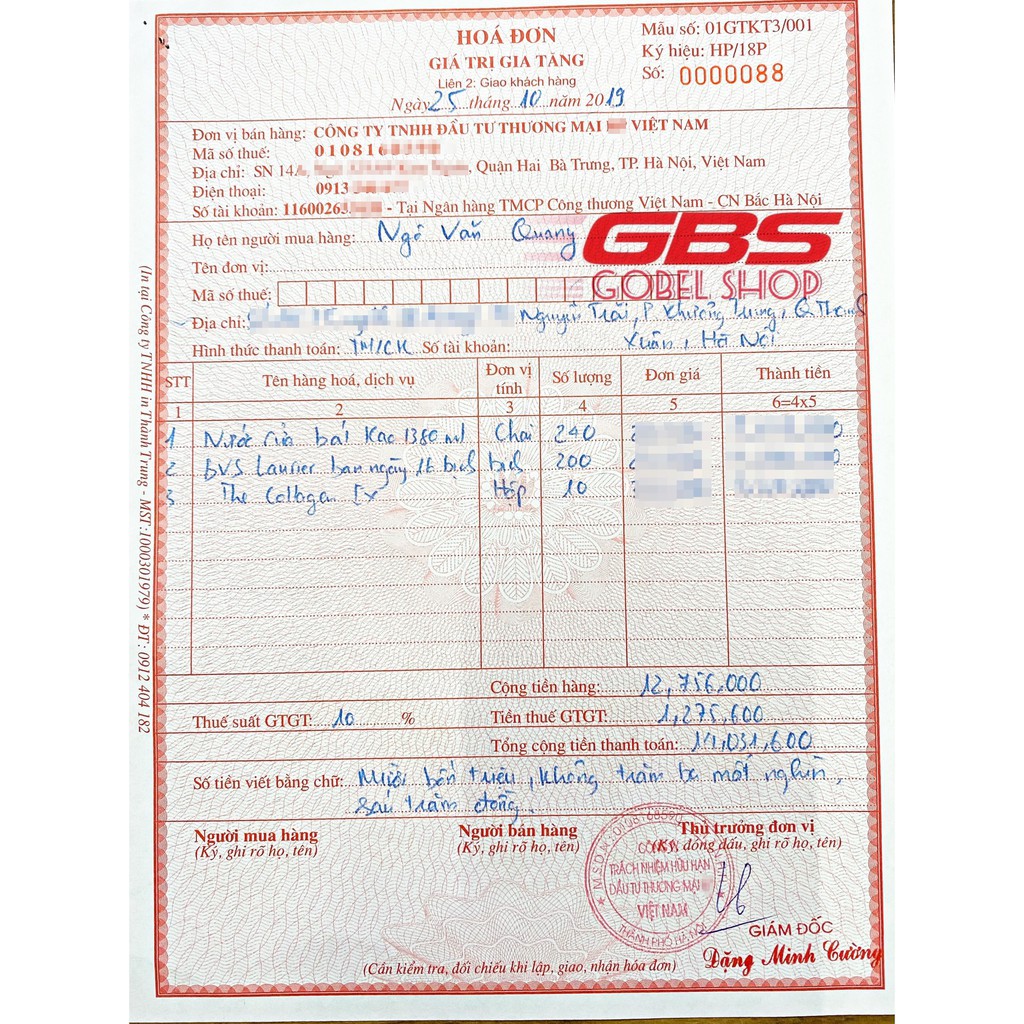 HOÁ ĐƠN
GIÁ TRỊ GIA TĂNG
Liên 2: Giao khách hàng
Ngày 25 tháng 10 năm 2019
Mẫu số: 01GTKT3/001
Ký hiệu: HP/18P
Số: 0000088
Đơn vị bán hàng: CÔNG TY TNHH ĐẦU TƯ THƯƠNG MẠI VIỆT NAM
Mã số thuế: 01081
Địa chỉ: SN 14A, Quận Hai Bà Trưng, TP. Hà Nội, Việt Nam
Điện thoại: 0913
Số tài khoản: 1160026 - Tại Ngân hàng TMCP Công thương Việt Nam - CN Bắc Hà Nội
Họ tên người mua hàng: Ngô Văn Quang
GBS
GOBEL SHOP
Tên đơn vị:
Mã số thuế:
Địa chỉ: Nguyễn Trãi, P Khương Trung, Q Thanh
Xuân, Hà Nội
Hình thức thanh toán: TM/CK Số tài khoản:
STT Tên hàng hoá, dịch vụ Đơn vị tính Số lượng Đơn giá Thành tiền
1 2 3 4 5 6=4x5
1 Nước rửa bát Kao 1380 ml Chai 240
2 BVS Laurier ban ngày bịch 200
3 The Collagen Ex Hộp 10
Cộng tiền hàng: 12,756,000
Thuế suất GTGT: 10 % Tiền thuế GTGT: 1,275,600
Tổng cộng tiền thanh toán: 14,031,600
Số tiền viết bằng chữ: Mười bốn triệu, không trăm ba mốt nghìn,
sáu trăm đồng.
Người mua hàng Người bán hàng Thủ trưởng đơn vị
(Ký, ghi rõ họ, tên) (Ký, ghi rõ họ, tên) (Ký, đóng dấu, ghi rõ họ, tên)
TRÁCH NHIỆM HỮU HẠN
ĐẦU TƯ THƯƠNG MẠI
VIỆT NAM
THÀNH PHỐ HÀ NỘI
GIÁM ĐỐC
Đặng Minh Cường
(Cần kiểm tra, đối chiếu khi lập, giao, nhận hóa đơn)
(In tại Công ty TNHH in Thành Trung - MST: 1000301979) * ĐT: 0912 404 182